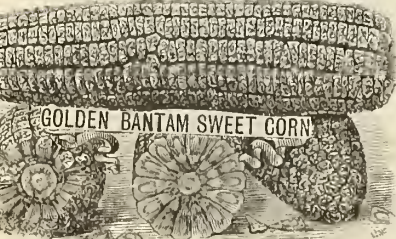 GOLDEN BANTAM SWEET CORN